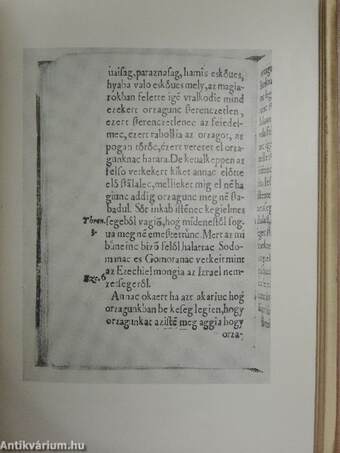 uaisag, paraznasag, hamis eskőues,
hyaba valo eskőues mely, az magia-
rokban felette igē vralkodic mind
ezekert orzagunc sterenczetlen,
ezert sterenczetlenec az feiedel-
mec, ezert rabollia az orzagot, az
pogan tőrőc, ezert veretet el orza-
gunknac hatara. De keuалkeppen az
felső verkekert kiket annac előtte
elő stālalec, mellieket mig el nē ha-
giunc addig orzagunc meg nē sta-
badul. Sőt inkab istēnec kegielmes
Tőren. segeből vagiō, hog midenestől fog-
3. ua meg nē emestettūnc. Mert az mi
būneinc bizō felől halattac Sodo-
manac es Gomoranac verkeirmint
Eze. 6 az Ezechiel mongia az Israel nem-
zetsegeről.
Annac okaert ha azt akariuc hog
orzagunkban be keseg legien, hogy
orzagunkat az istē meg aggia hogy
orza-
Antikvárium.hu